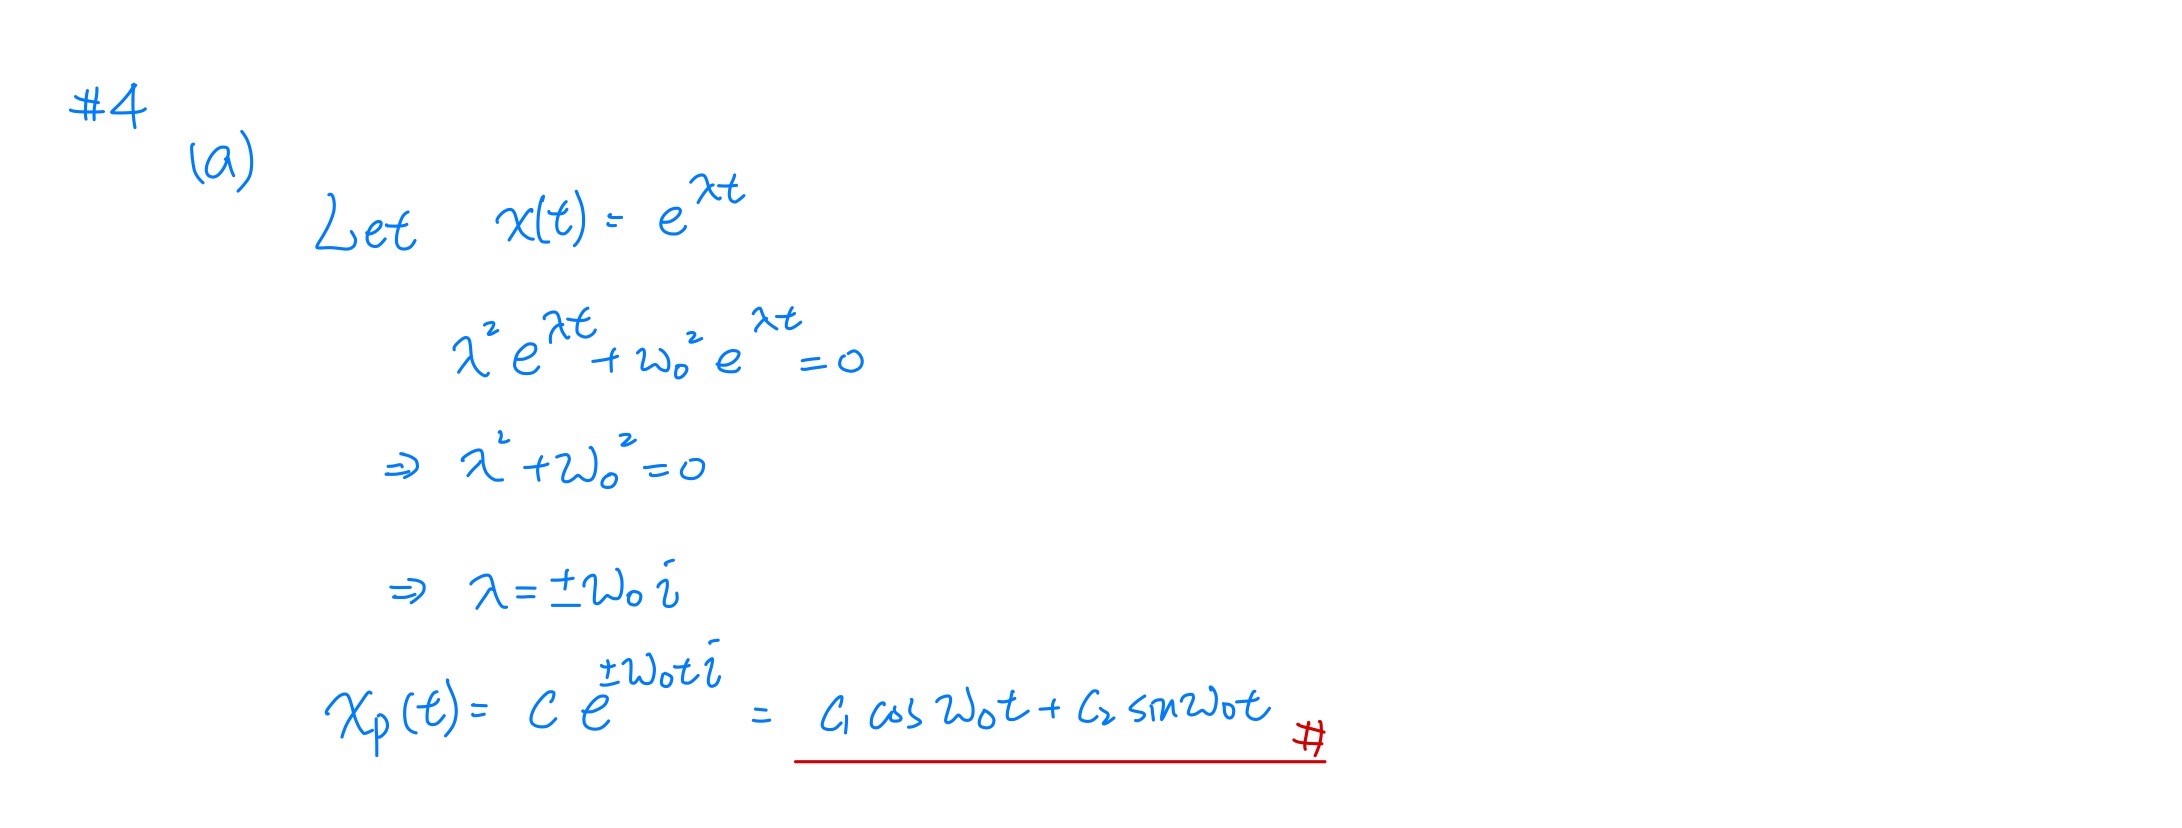 #4
(a)
Let x(t) = e^{λt}
λ² e^{λt} + ω₀² e^{λt} = 0
⇒ λ² + ω₀² = 0
⇒ λ = ±ω₀ i
x_p(t) = C e^{±ω₀ti} = C₁ cos ω₀t + C₂ sin ω₀t #